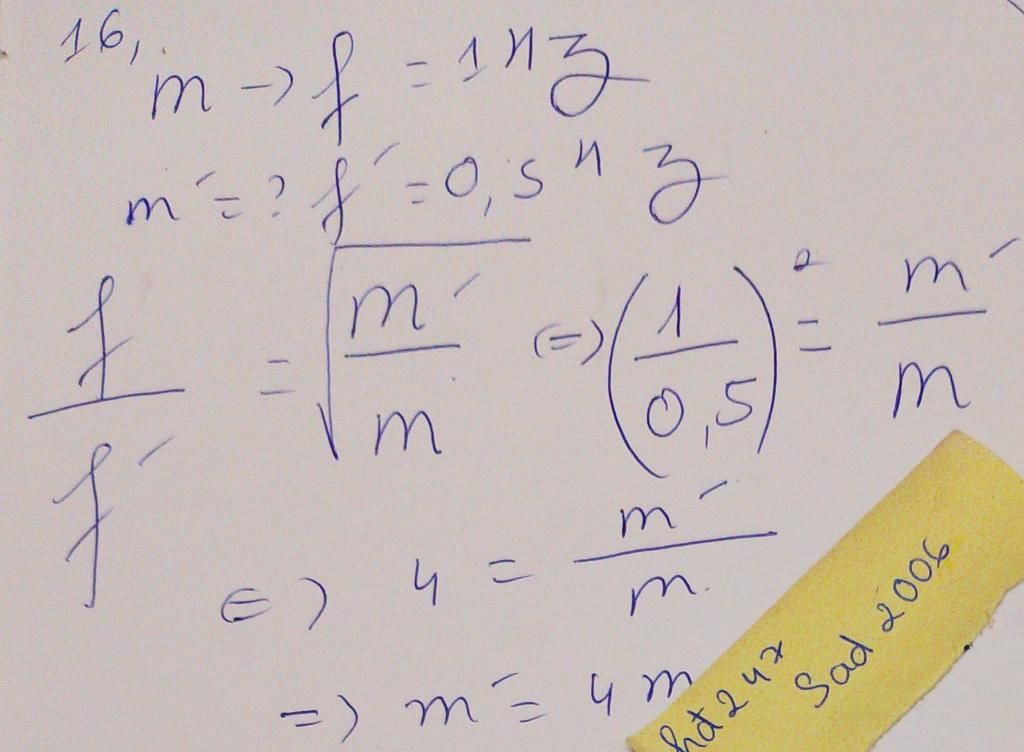 16,
m -> f = 1Hz
m' = ? f' = 0,5Hz
f/f' = √(m'/m) <=> (1/0,5)² = m'/m
<=> 4 = m'/m
=> m' = 4m
hd247
Sad 2006